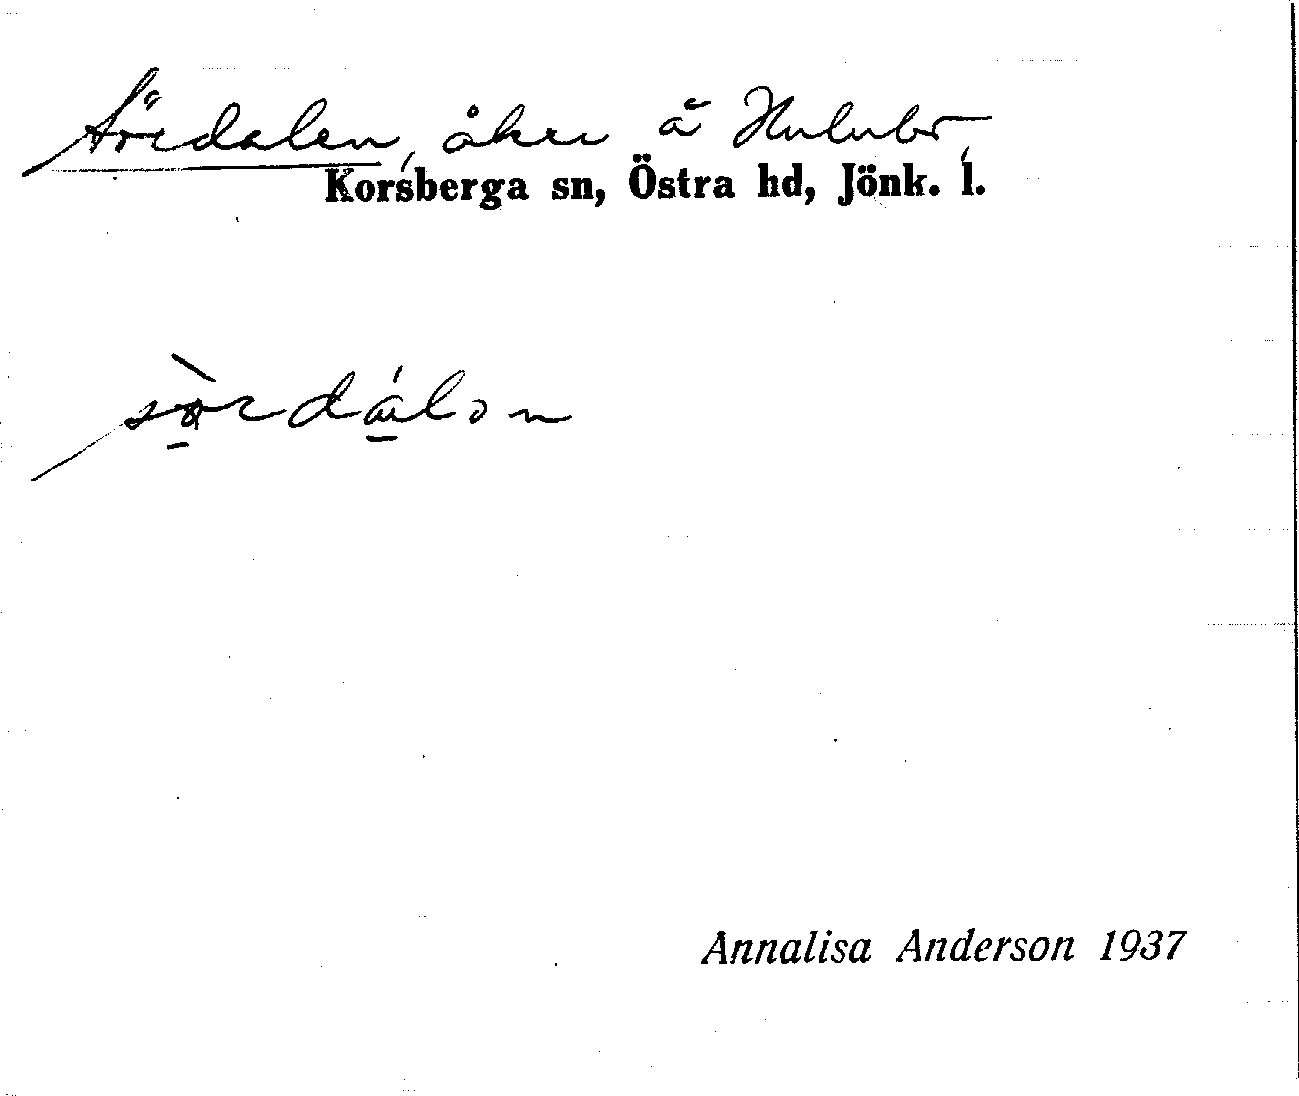 Sördalen, åker å Hulubo,
Korsberga sn, Östra hd, Jönk. l.
Annalisa Anderson 1937